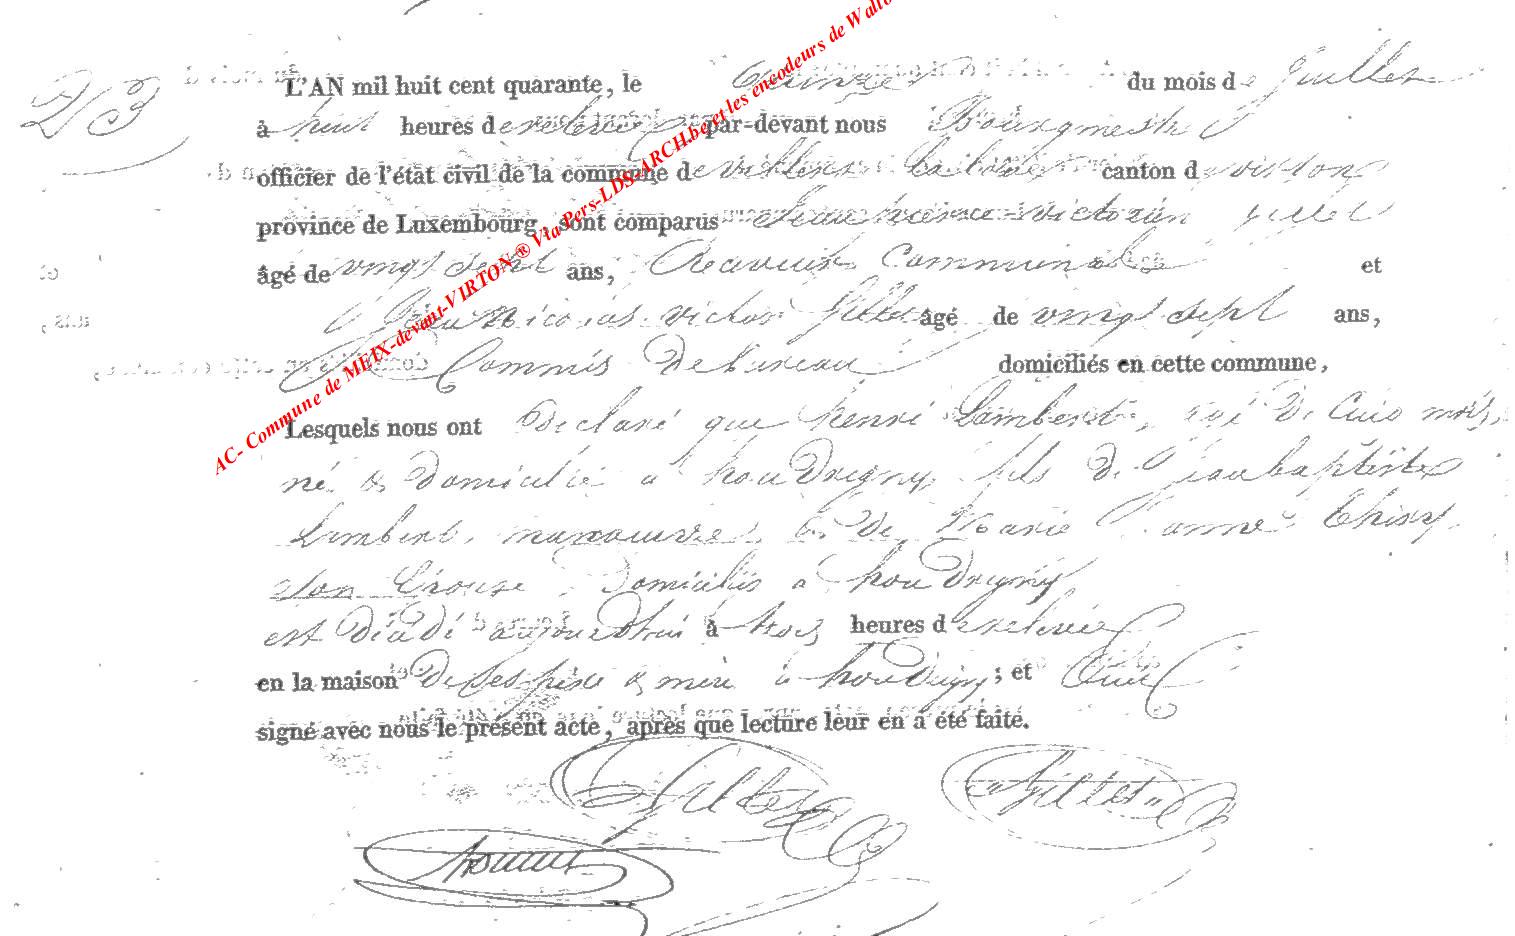 23
L'AN mil huit cent quarante, le Quinze du mois de juillet
à huit heures de relevée par-devant nous Bourgmestre
officier de l'état civil de la commune de villers la loue canton de virton
province de Luxembourg, sont comparus victorin gillet
âgé de vingt sept ans, Receveur Communal et
Jean Nicolas victor Gillet âgé de vingt sept ans,
Commis De bureau domiciliés en cette commune,
Lesquels nous ont Déclaré que henri Lambert, agé De Cinq mois,
né & Domicilié a houdrigny, fils de jean baptiste
Lambert, manouvre, & de Marie anne Thiry
son Epouse, Domiciliés a houdrigny
est Décédé aujourdhui à trois heures de relevée
en la maison De Ses père & mère à houdrigny ; et ont
signé avec nous le présent acte, après que lecture leur en a été faite.
Gillet Gillet
AC- Commune de MEIX-devant-VIRTON ® Via Pers-LDS-ARCH.be et les encodeurs de Wallo